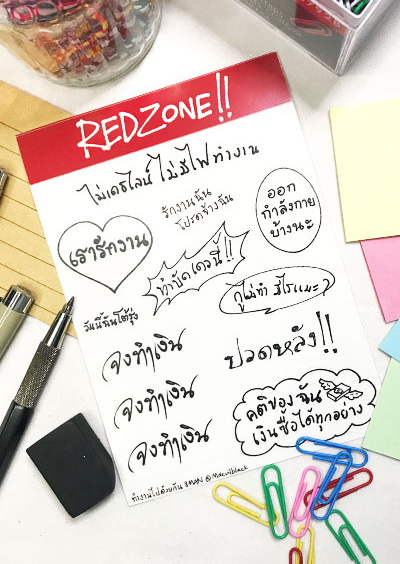 REDZONE!!
ไม่เดธไลน์ ไม่มีไฟทำงาน
รักงานฉัน
โปรดจ้างฉัน
ออก
กำลังกาย
บ้างนะ
เรารักงาน
ทำบัดเดวนี้!!
วันนี้ฉันได้
จงทำเงิน
จงทำเงิน
จงทำเงิน
ปวดหลัง!!
คติของฉัน
เงินซื้อได้ทุกอย่าง
ทำงานไปด้วยกัน @Maewblack